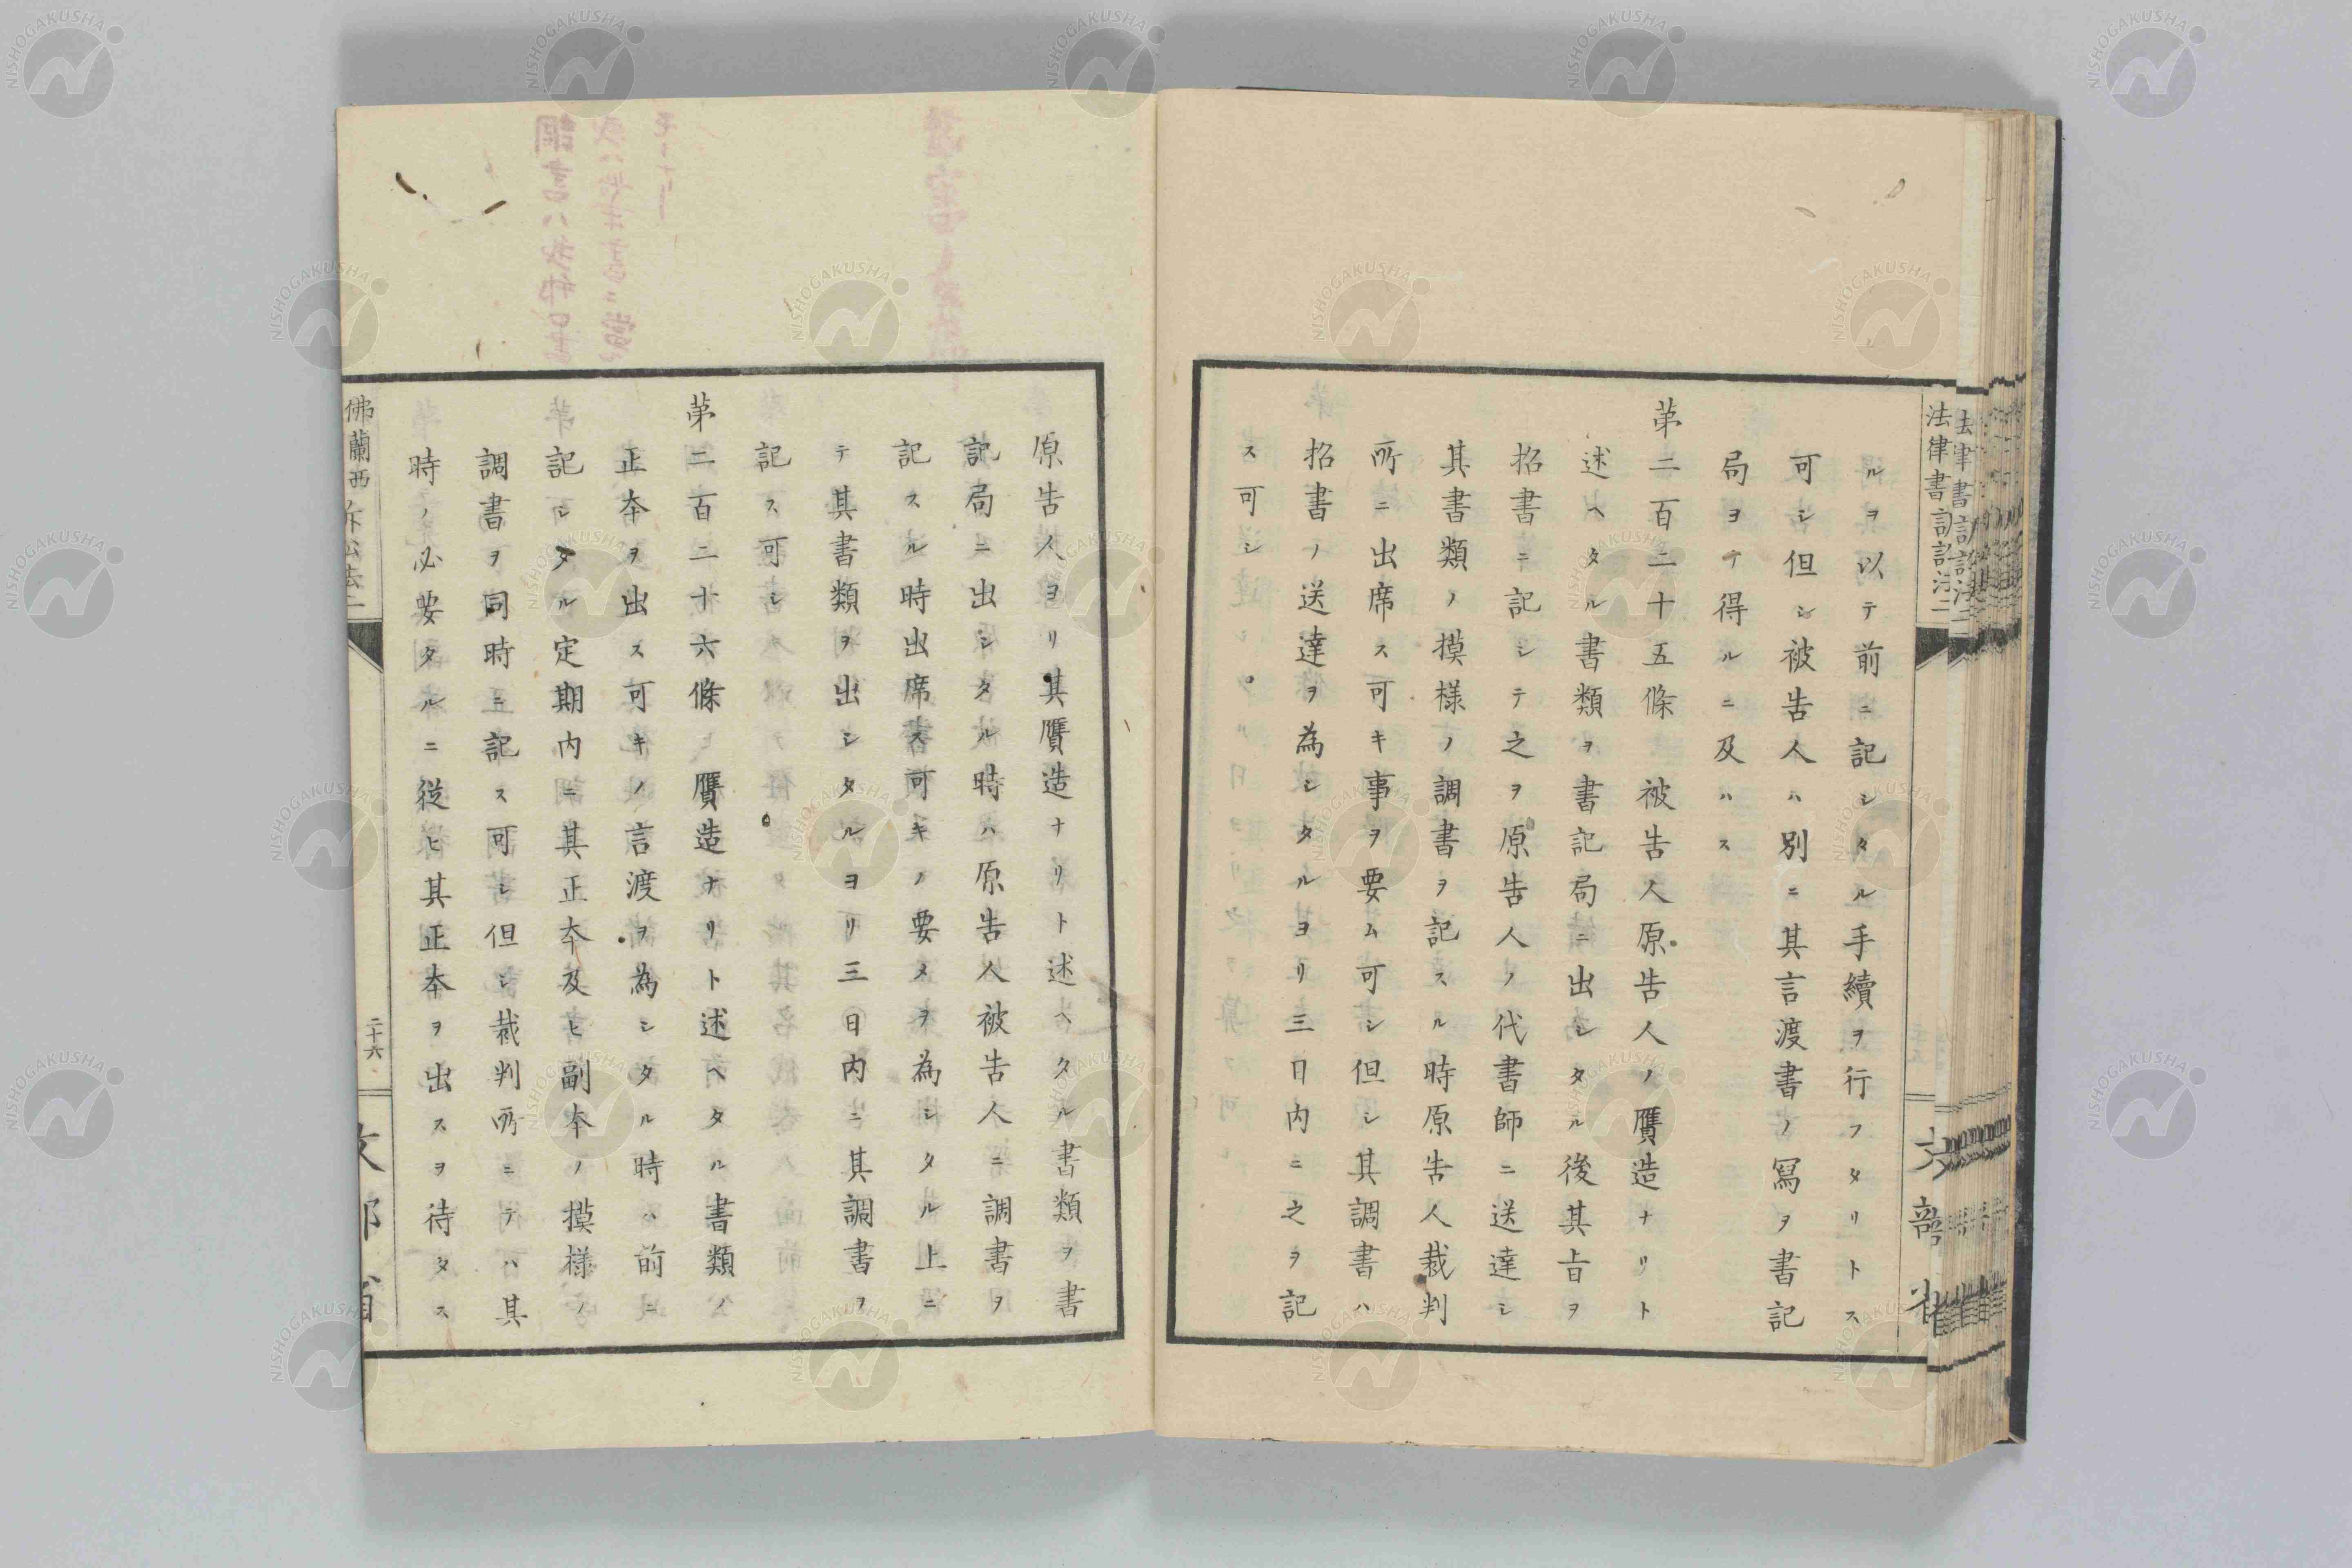 ルヲ以テ前ニ記シタル手續ヲ行フタリトス
可シ但シ被告人ハ別ニ其言渡書ノ寫ヲ書記
局ヨテ得ルニ及ハス
第二百二十五條 被告人原告人ノ贋造ナリト
述ヘタル書類ヲ書記局ニ出シタル後其旨ヲ
招書ニ記シテ之ヲ原告人ノ代書師ニ送達シ
其書類ノ摸様ノ調書ヲ記スル時原告人裁判
所ニ出席ス可キ事ヲ要ム可シ但シ其調書ハ
招書ノ送達ヲ為シタルヨリ三日内ニ之ヲ記
ス可シ
原告人ヨリ其贋造ナリト述ヘタル書類ヲ書
記局ニ出シタル時ハ原告人被告人ニ調書ヲ
記スル時出席ス可キノ要メヲ為シタル上ニ
テ其書類ヲ出シタルヨリ三日内ニ其調書ヲ
記ス可シ
第二百二十六條 贋造ナリト述ヘタル書類ノ
正本ヲ出ス可キノ言渡ヲ為シタル時ハ前ニ
記シタル定期内ニ其正本及ヒ副本ノ摸様ノ
調書ヲ同時ニ記ス可シ但シ裁判所ニテハ其
時ノ必要タルニ從ヒ其正本ヲ出スヲ待タス
佛蘭西
二十六
NISHOGAKUSHA